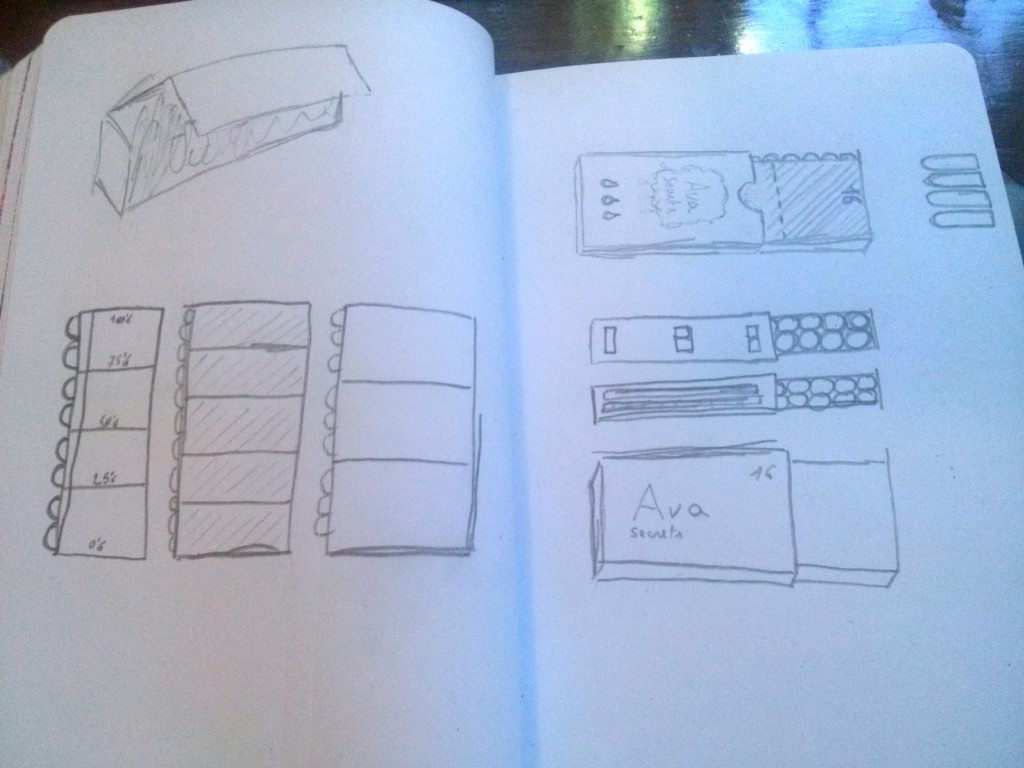 100%
25%
2.5%
0%
Ava
secrets
16
16
Ava
secrets